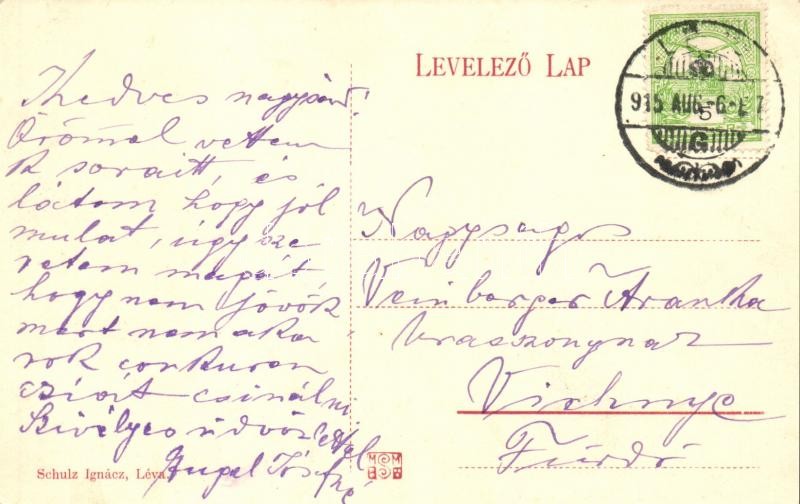 LEVELEZŐ LAP
915 AUG -6
5
Kedves
Örömmel vettem
k sorait, és
látom hogy jól
mulat, úgy sze
retem magát,
hogy nem jövök
mert nem aka
rok
csinálni
Szívélyes üdvöz
Nagyságos
Veinberger Aranka
urasszonynak
Vichnye
Fürdő
Schulz Ignácz, Léva.
MSM